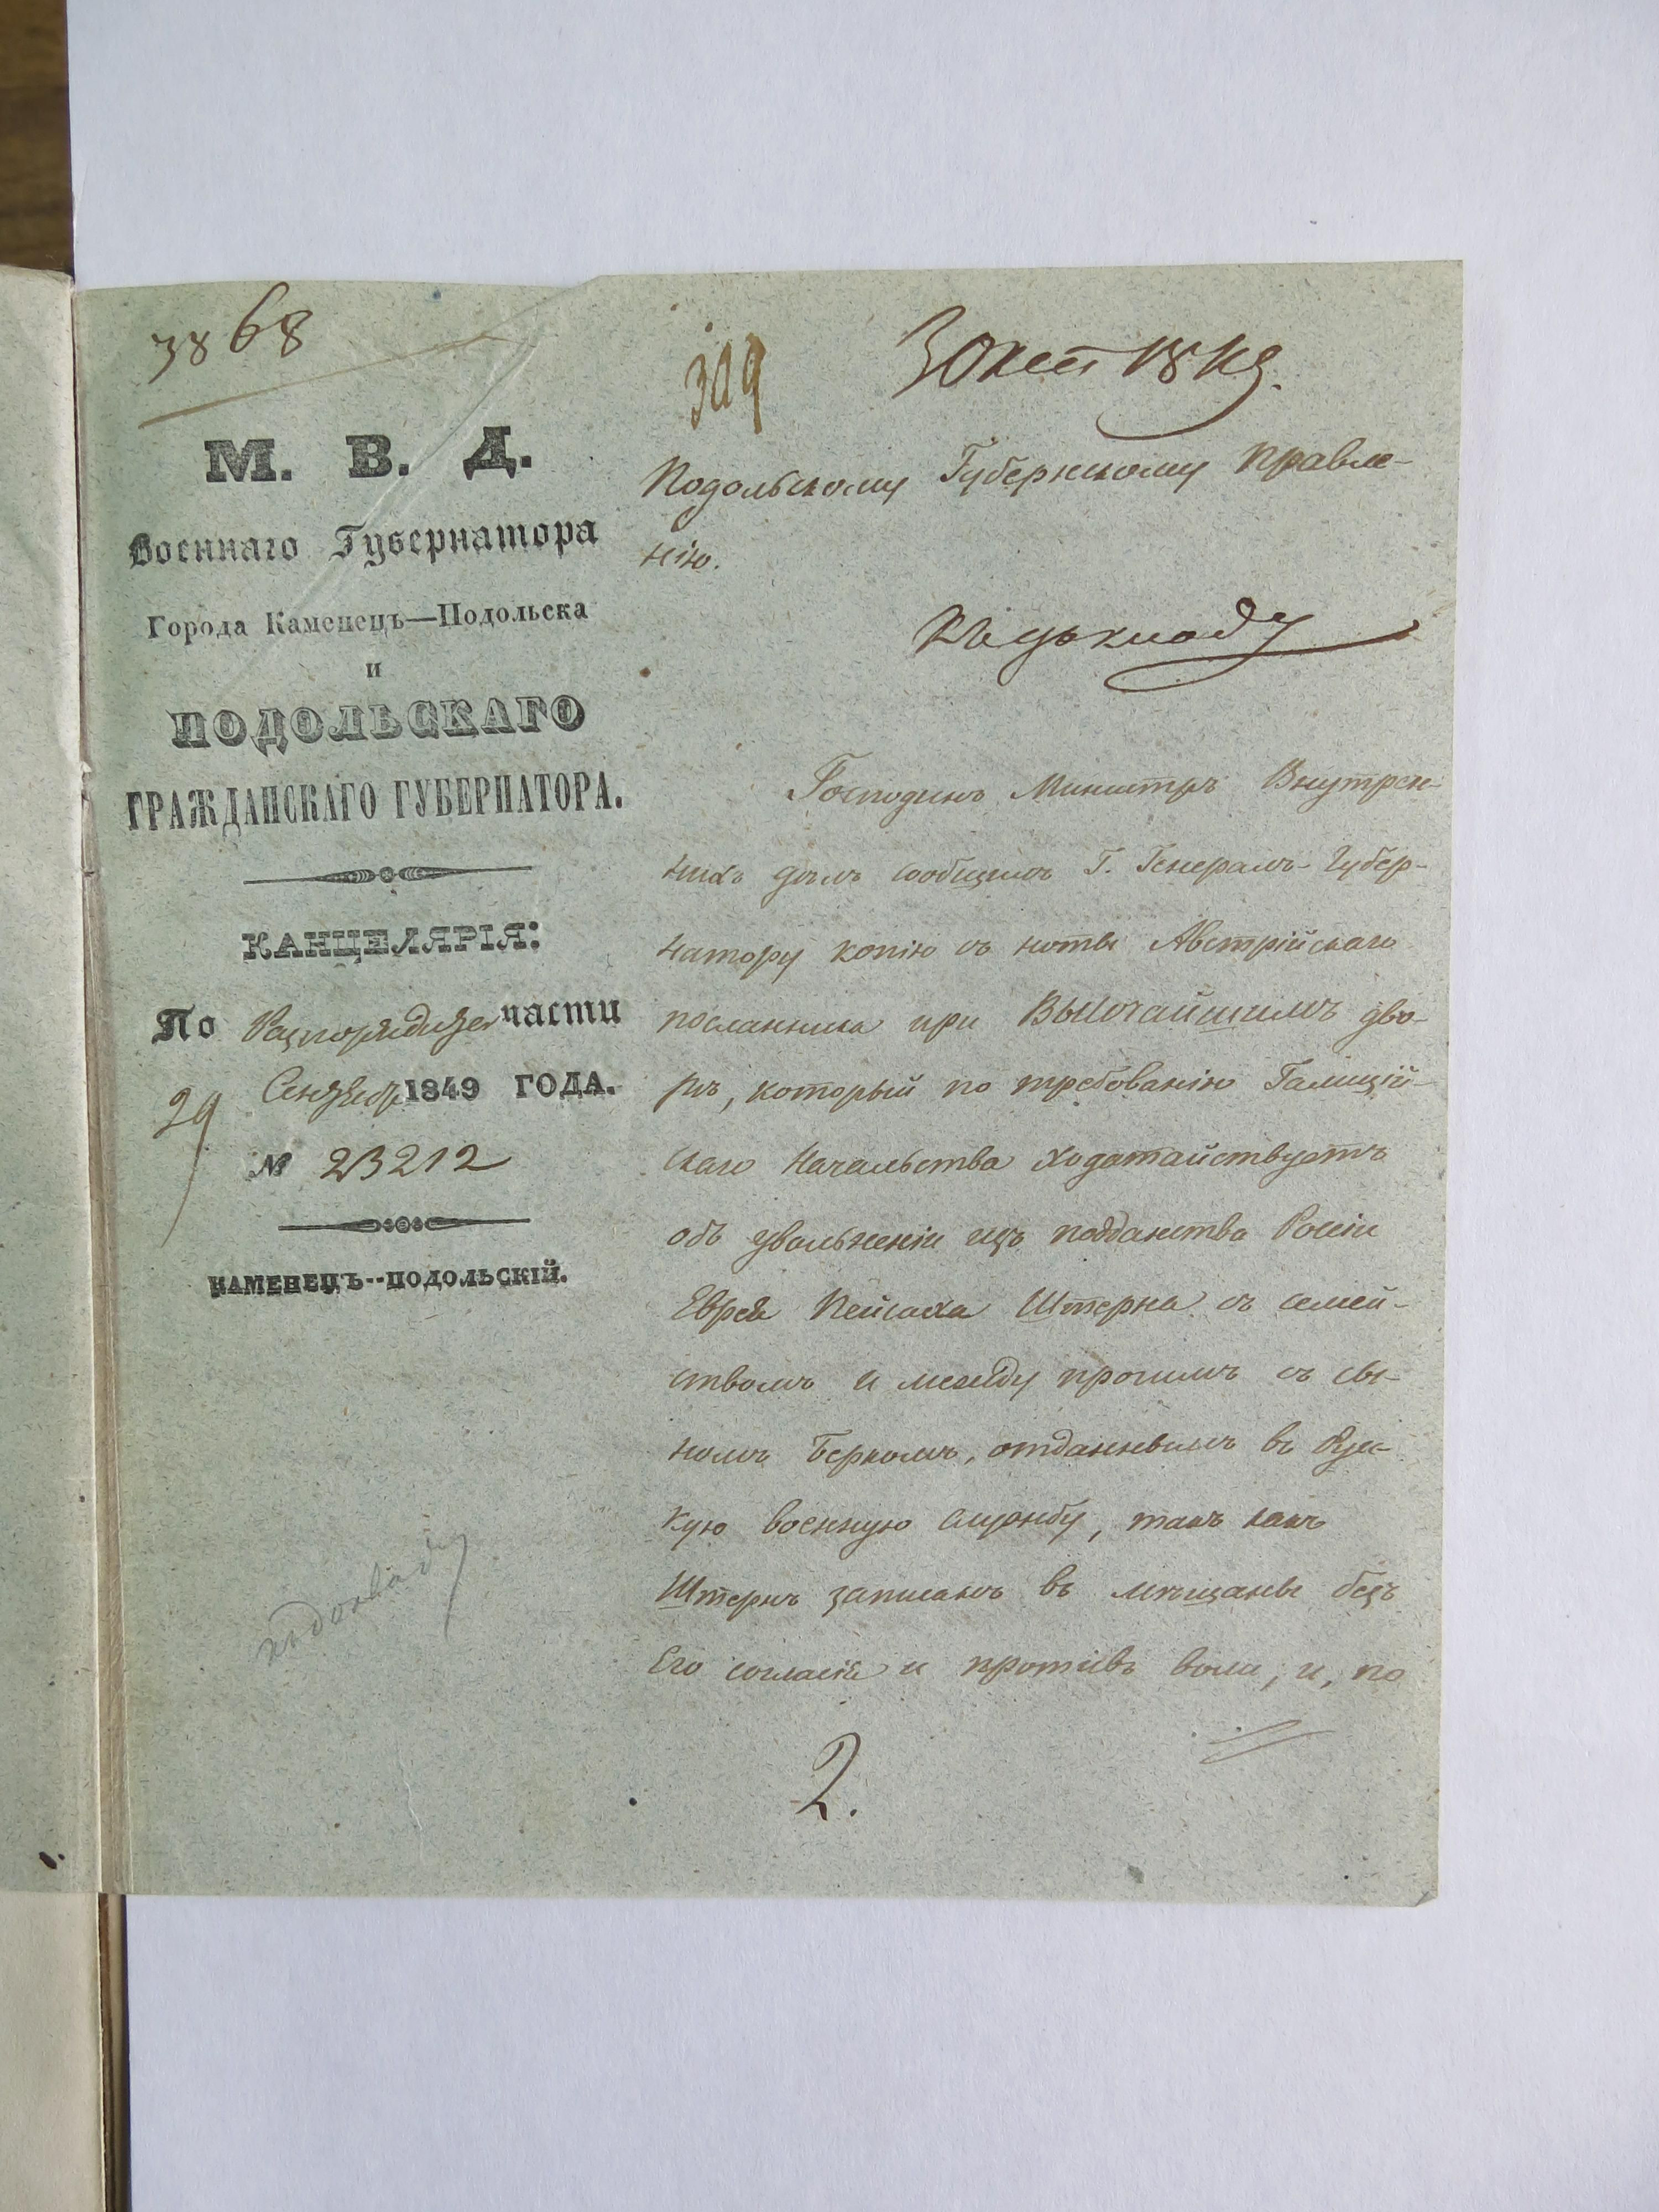 3868
М. В. Д.
Военнаго Губернатора
Города Каменецъ—Подольска
и
ПОДОЛЬСКАГО
ГРАЖДАНСКАГО ГУБЕРНАТОРА.
КАНЦЕЛЯРІЯ:
По части
29 1849 ГОДА.
№ 23212
КАМЕНЕЦЪ--ПОДОЛЬСКІЙ.
къ докладу
3 Окт 1849.
Подольскому Губернскому Правле-
нію.
Къ докладу
Господинъ Министръ Внутрен-
нихъ дѣлъ сообщилъ Г. Генералъ-Губер-
натору копію съ ноты Австрійскаго
посланника при Высочайшимъ дво-
рѣ, который по требованію Галицій-
скаго Начальства ходатайствуетъ
объ увольненіи изъ подданства Россіи
Еврея Пейсаха Штерна съ семей-
ствомъ и между прочимъ съ сы-
номъ Беркомъ, отданнымъ въ Рус-
кую военную службу, такъ какъ
Штернъ записанъ въ мѣщаны безъ
Его согласія и противъ воли, и, по
2.